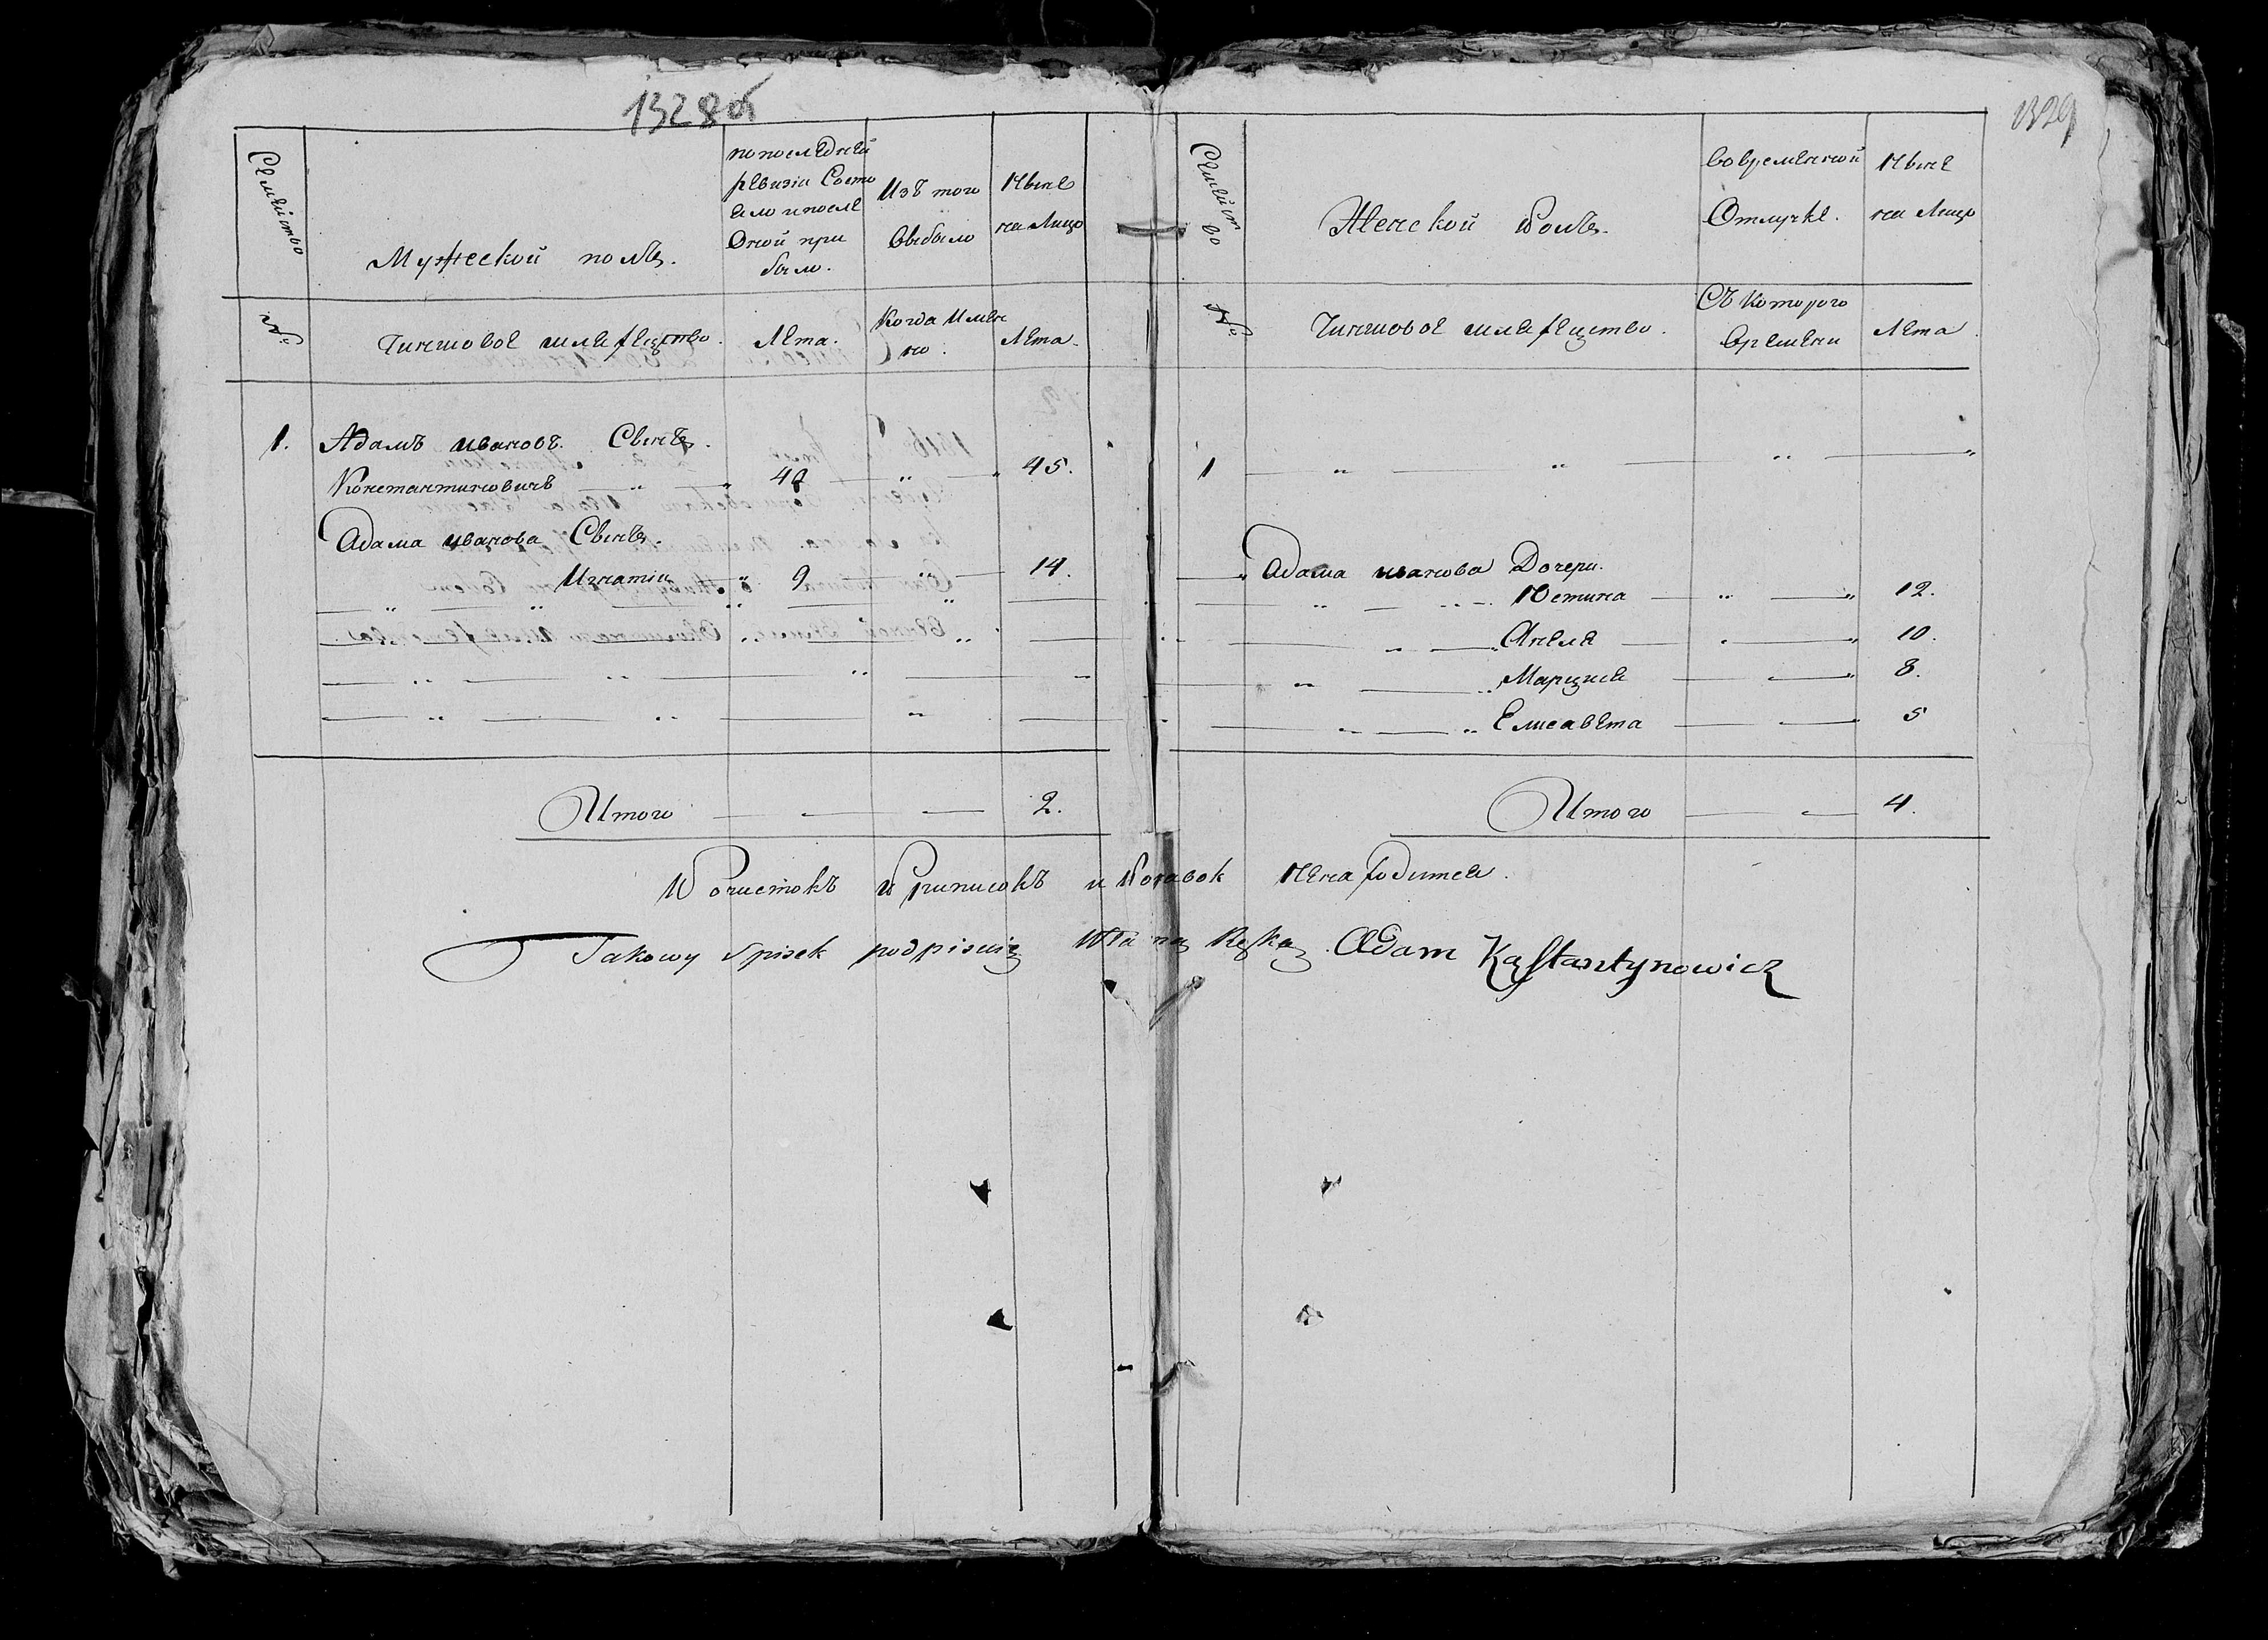 1328об
1329
Семейство
Мужеской полъ.
по последней
ревизіи Состо
яло и после
Оной при
было.
Изъ того
выбыло
Ныне
на Лицо
№
Чиншовое шляхецтво.
Лета.
Когда Имян
но.
Лета.
1. Адамъ ивановъ. Сынъ.
Константиновичъ 40 45.
Адама иванова Сынъ.
Игнатіи 9 14.
Итого 2.
Семейст
во
Женской полъ.
Во временной
Отлучке.
Ныне
на Лицо
№
Чиншовое шляхецтво.
Съ Которого
времяни
Лета
1
Адама иванова Дочери.
Юстина 12.
Анеля 10.
Марцыя 8.
Елисавета 5
Итого 4.
И Почистокъ и Приписокъ и Поправок Ненаходитса.
Takowy Spisek podpisuię Własną Ręką. Adam Kąstantynowicz